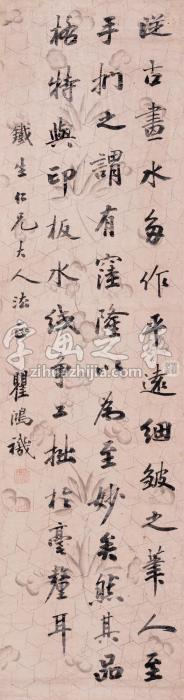 從古畫水多作平遠細皺之筆人至
手捫之謂有窪隆以為至妙矣然其品
格特與印板水紙爭工拙於毫釐耳
鐵生仁兄大人法正 瞿鴻禨
字画之家
zihuazhijia.com